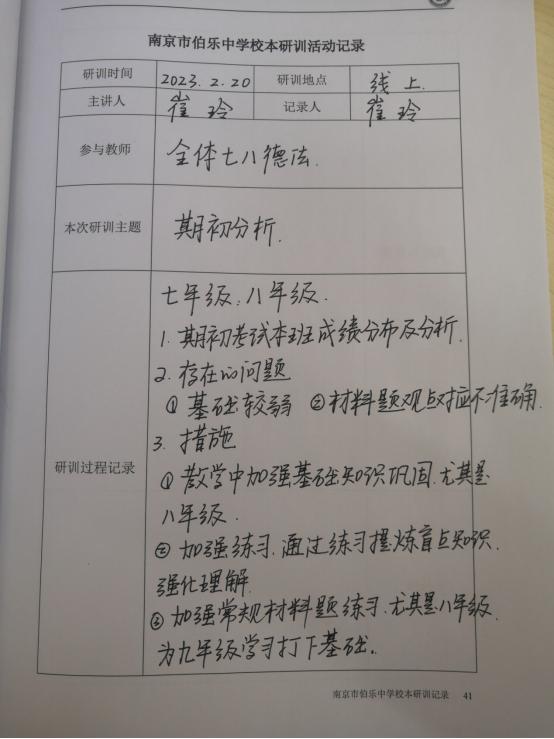 南京市伯乐中学校本研训活动记录
研训时间 2023.2.20 研训地点 线上.
主讲人 崔玲 记录人 崔玲
参与教师 全体七八德法.
本次研训主题 期初分析.
研训过程记录
七年级:八年级.
1.期初考试本班成绩分布及分析.
2.存在的问题
①基础较弱 ②材料题观点对应不准确.
3.措施
①教学中加强基础知识巩固.尤其是
八年级.
②加强练习.通过练习提炼盲点知识.
强化理解.
③加强常规材料题练习.尤其是八年级.
为九年级学习打下基础.
南京市伯乐中学校本研训记录 41